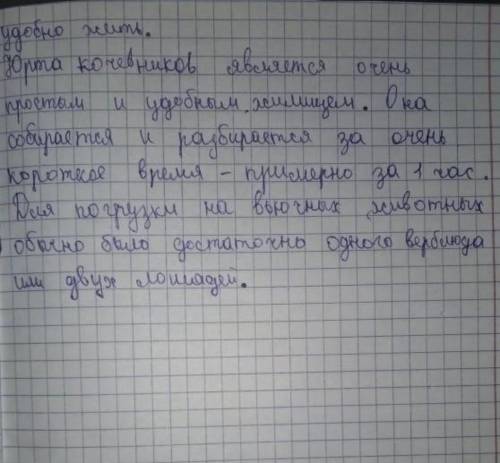 удобно жить.
Юрта кочевников является очень
простым и удобным жилищем. Она
собирается и разбирается за очень
короткое время - примерно за 1 час.
Для погрузки на вьючных животных
обычно было достаточно одного верблюда
или двух лошадей.